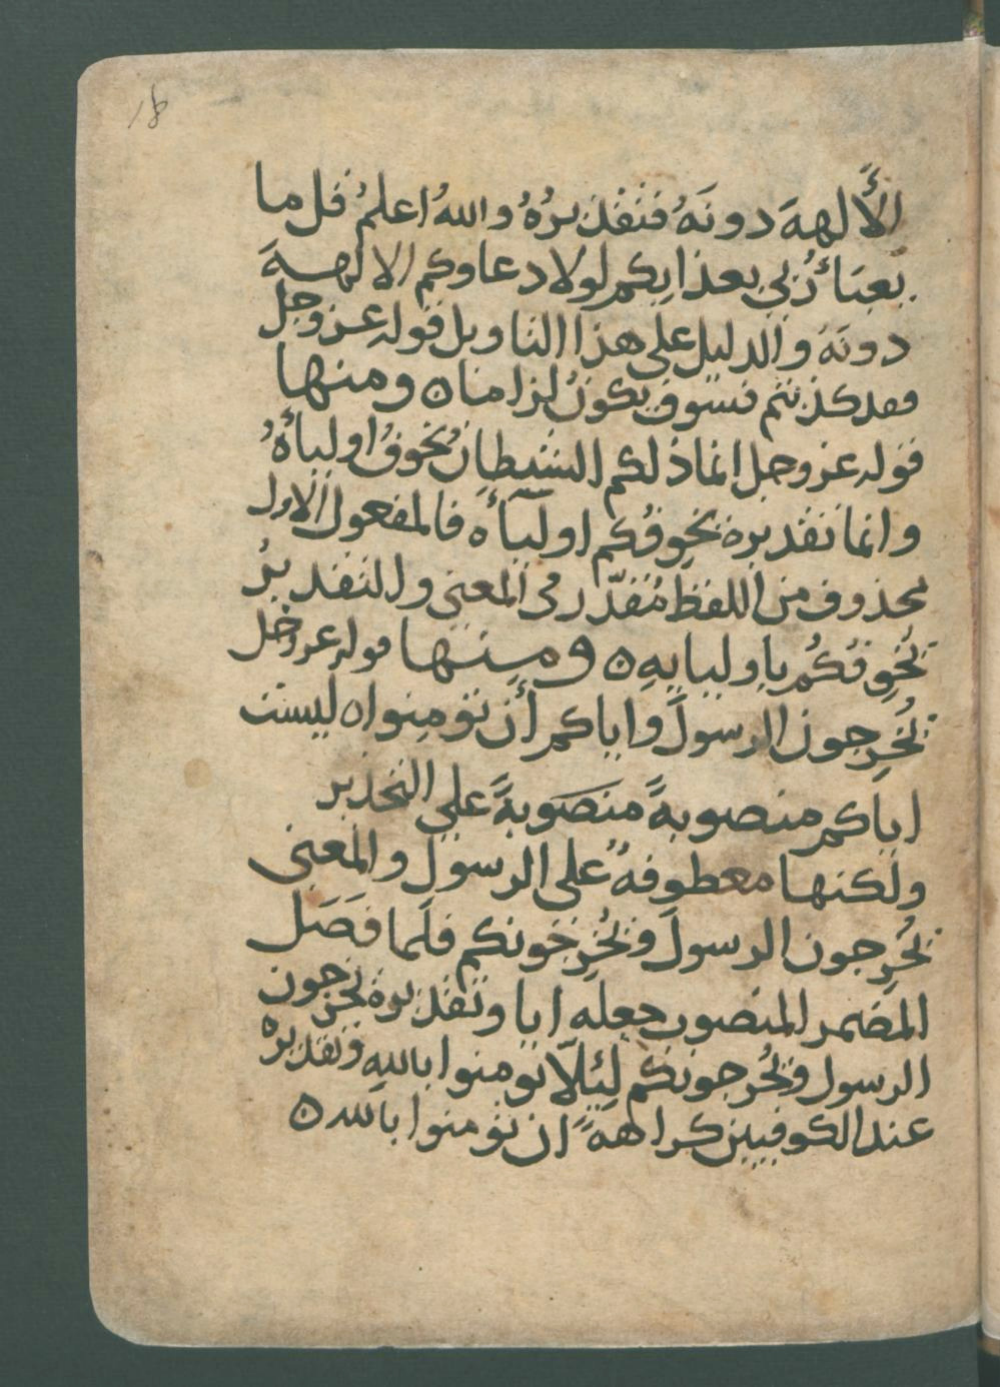 ١٤
الألهةَ دونَهُ فتقديرُهُ والله اعلمُ قل ما
يعبَأ رُبي بعذابِكم لولا دعاوكم الالهةَ
دونَهُ والدليل على هذا التاويل قوله عز وجل
فقد كذبتم فسوف يكونُ لزاماً ه ومنها
قوله عز وجل انما ذلكم الشيطان يُخوفُ اولياءَهُ
وانما تقديره يخوفُكم اوليآءه فالمفعول الاول
محذوف من اللفظ مُقدّر في المعنى والتقديرُ
يُخوِفكُم باوليايِهِ ه ومنها قوله عز وجل
يُخرِجون الرسولَ واياكم أن تومِنوا ه ليست
اياكم منصوبةً منصَوبةً على التحذير
ولكنها معطوفةٌ على الرسول والمعنى
يُخرِجون الرسولَ ويُخرِجونكم فلما فصَل
المضمر المنصوب جعله ايا وتقديره يُخرجون
الرسول ويُخرجونكم لِئلّا تومنوا باللهِ وتقديرهُ
عند الكوفيين كراهةً ان تومنوا بالله ه